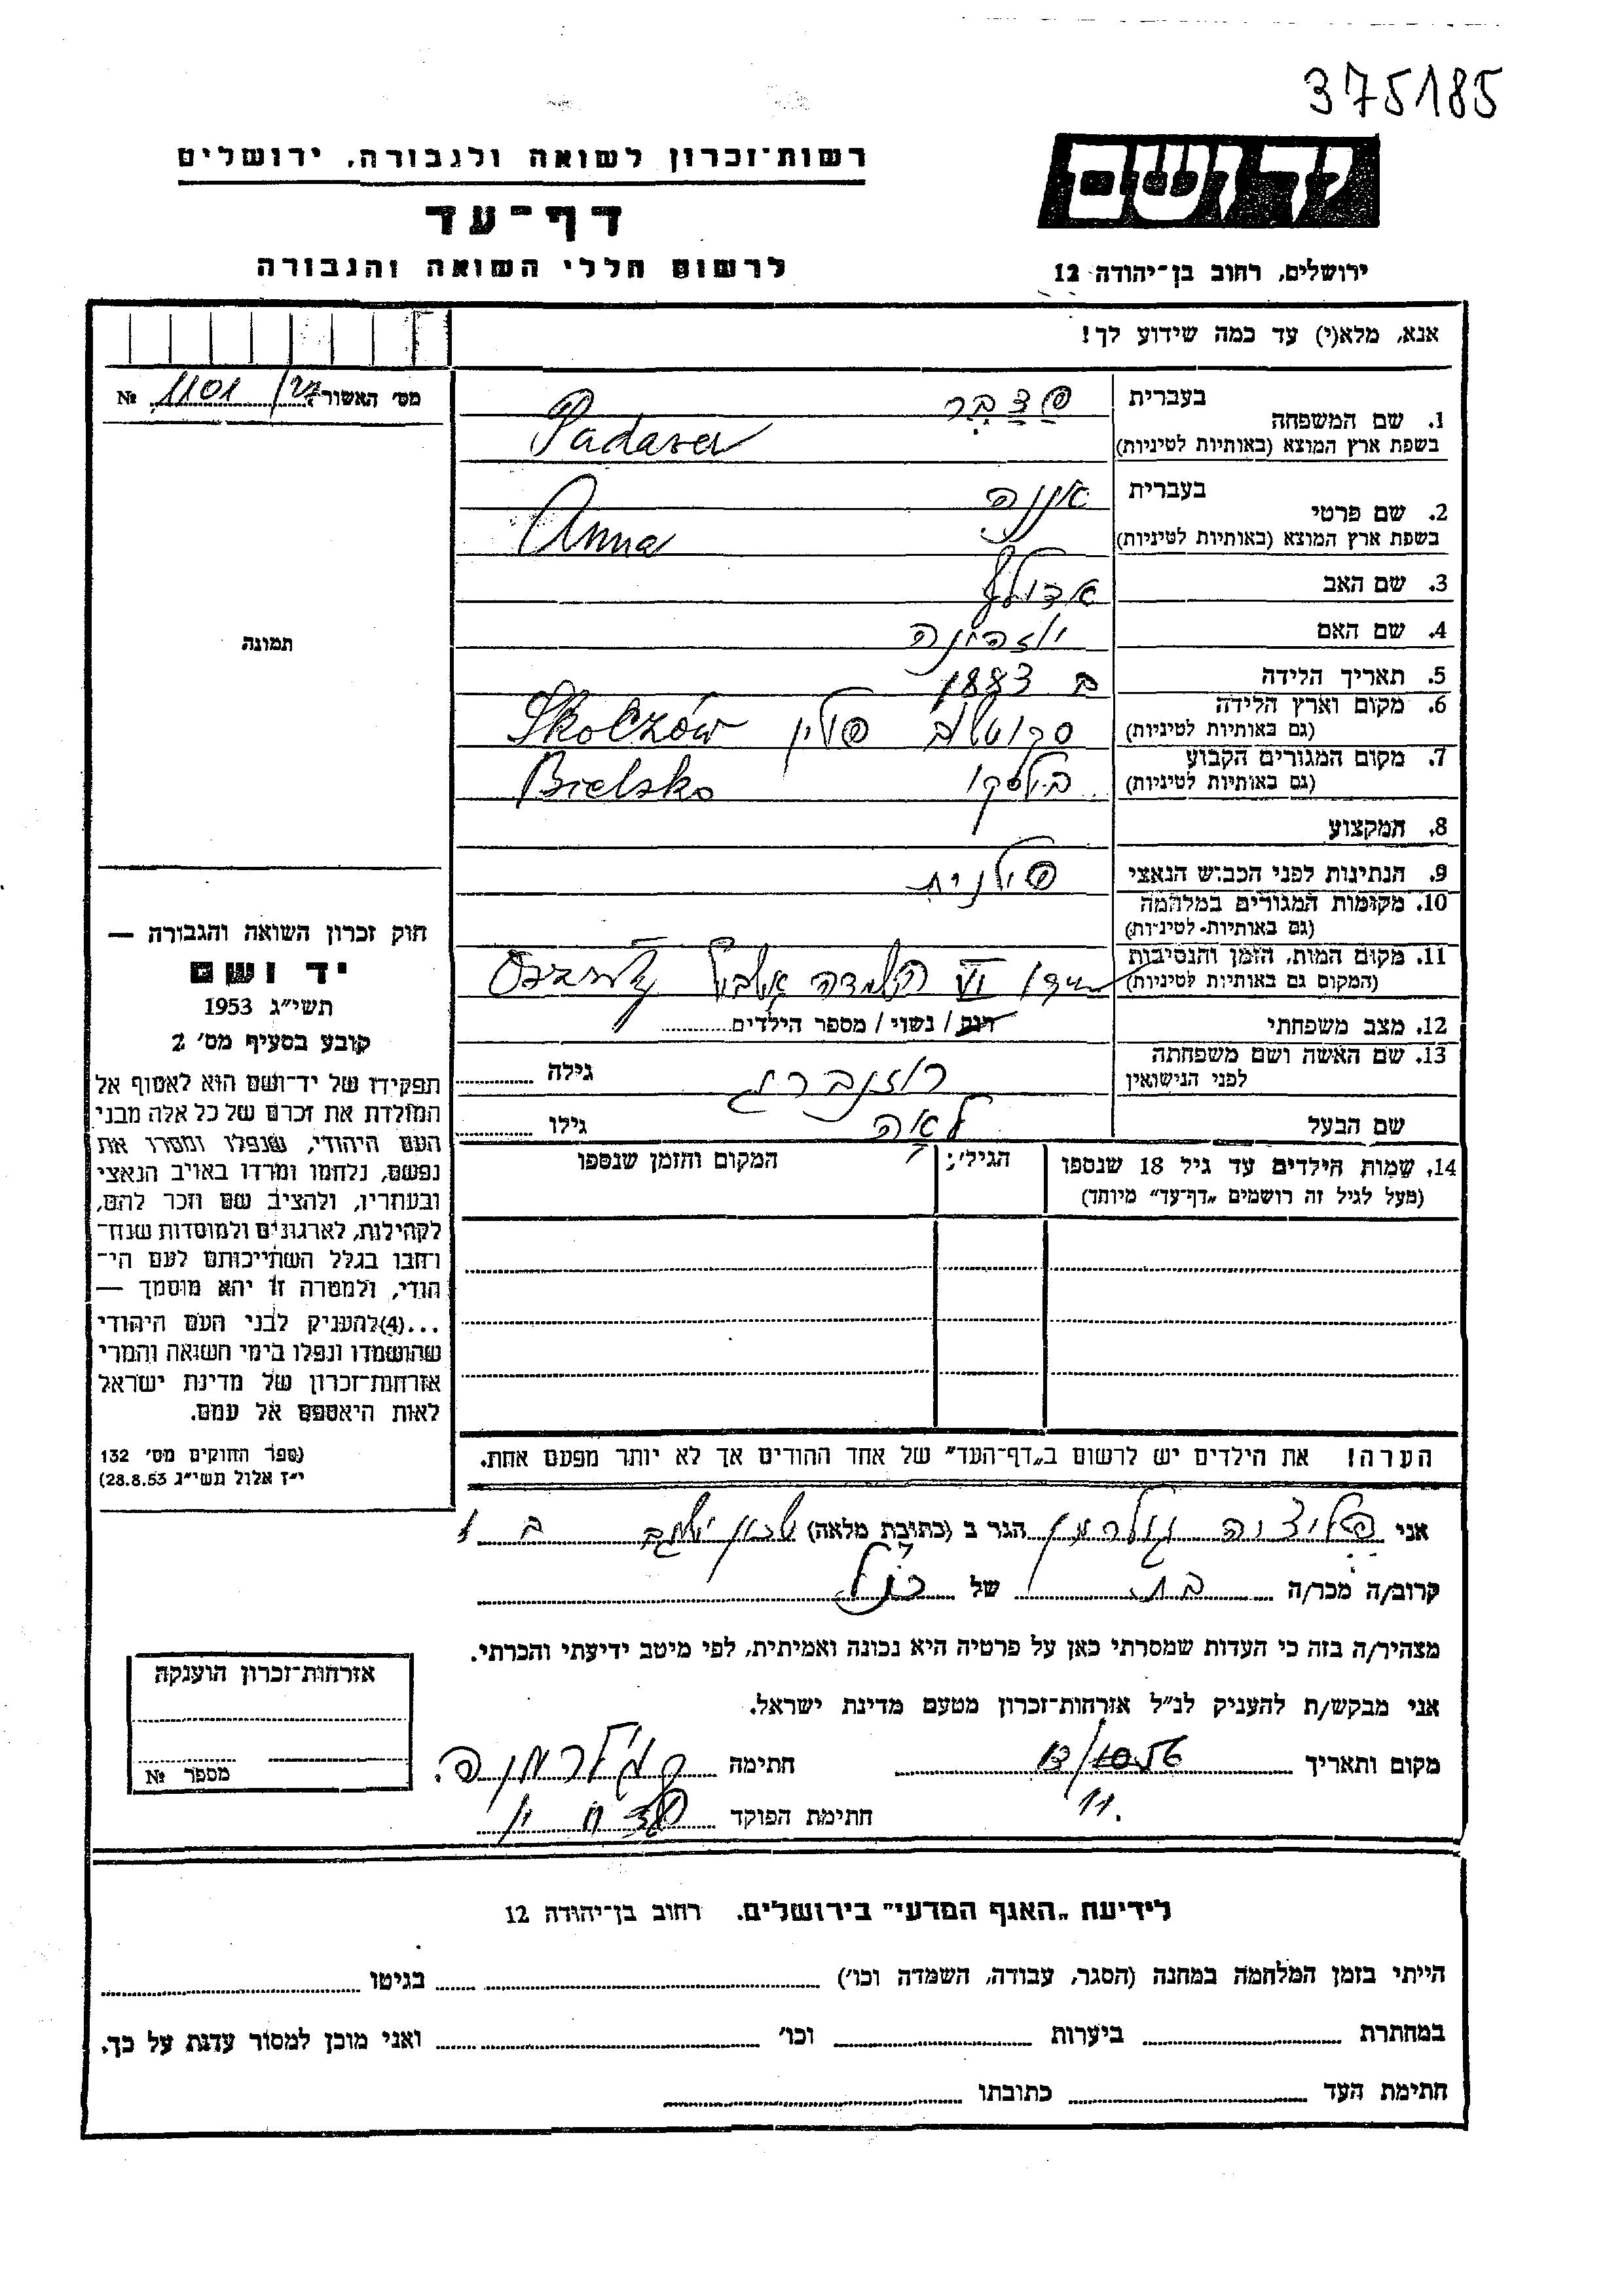 375185
יד ושם
רשות־זכרון לשואה ולגבורה, ירושלים
דף־עד
לרשום חללי השואה והגבורה
ירושלים, רחוב בן־יהודה 12
אנא, מלא(י) עד כמה שידוע לך!
מס׳ האשור 1101 №
1. שם המשפחה
בעברית
בשפת ארץ המוצא (באותיות לטיניות) Padawer
2. שם פרטי
בעברית אננה
בשפת ארץ המוצא (באותיות לטיניות) Anna
3. שם האב אדולף
4. שם האם
5. תאריך הלידה ב 1883
6. מקום וארץ הלידה
(גם באותיות לטיניות) פולין Skoczów
7. מקום המגורים הקבוע
(גם באותיות לטיניות) בילסקו Bielsko
8. המקצוע
9. הנתינות לפני הכבוש הנאצי פולנית
10. מקומות המגורים במלחמה
(גם באותיות לטיניות)
11. מקום המות, הזמן והנסיבות
(המקום גם באותיות לטיניות)
12. מצב משפחתי רווק / נשוי / מספר הילדים
13. שם האשה ושם משפחתה
לפני הנישואין רוזנברג גילה
שם הבעל גילו
14. שמות הילדים עד גיל 18 שנספו
(מעל לגיל זה רושמים „דף־עד” מיוחד)
הגיל
המקום והזמן שנספו
תמונה
חוק זכרון השואה והגבורה —
יד ושם
תשי״ג 1953
קובע בסעיף מס׳ 2
תפקידו של יד־ושם הוא לאסוף אל
המולדת את זכרם של כל אלה מבני
העם היהודי, שנפלו ומסרו את
נפשם, נלחמו ומרדו באויב הנאצי
ובעוזריו, ולהציב שם וזכר להם,
לקהילות, לארגונים ולמוסדות שנח־
רחבו בגלל השתייכותם לעם הי־
הודי, ולמטרה זו יהא מוסמך —
...(4)להעניק לבני העם היהודי
שהושמדו ונפלו בימי השואה והמרי
אזרחות־זכרון של מדינת ישראל
לאות היאספם אל עמם.
(ספר החוקים מס׳ 132
י״ז אלול תשי״ג 28.8.53)
הערה! את הילדים יש לרשום ב„דף־העד” של אחד ההורים אך לא יותר מפעם אחת.
אני הגר ב (כתובת מלאה)
קרוב/ה מכר/ה בת של
מצהיר/ה בזה כי העדות שמסרתי כאן על פרטיה היא נכונה ואמיתית, לפי מיטב ידיעתי והכרתי.
אני מבקש/ת להעניק לנ״ל אזרחות־זכרון מטעם מדינת ישראל.
מקום ותאריך 13/10 56 חתימה
11.
חתימת הפוקד
אזרחות־זכרון הוענקה
מספר №
לידיעת „האגף המדעי” בירושלים, רחוב בן־יהודה 12
הייתי בזמן המלחמה במחנה (הסגר, עבודה, השמדה וכו׳) בגיטו
במחתרת ביערות וכו׳ ואני מוכן למסור עדות על כך.
חתימת העד כתובתו